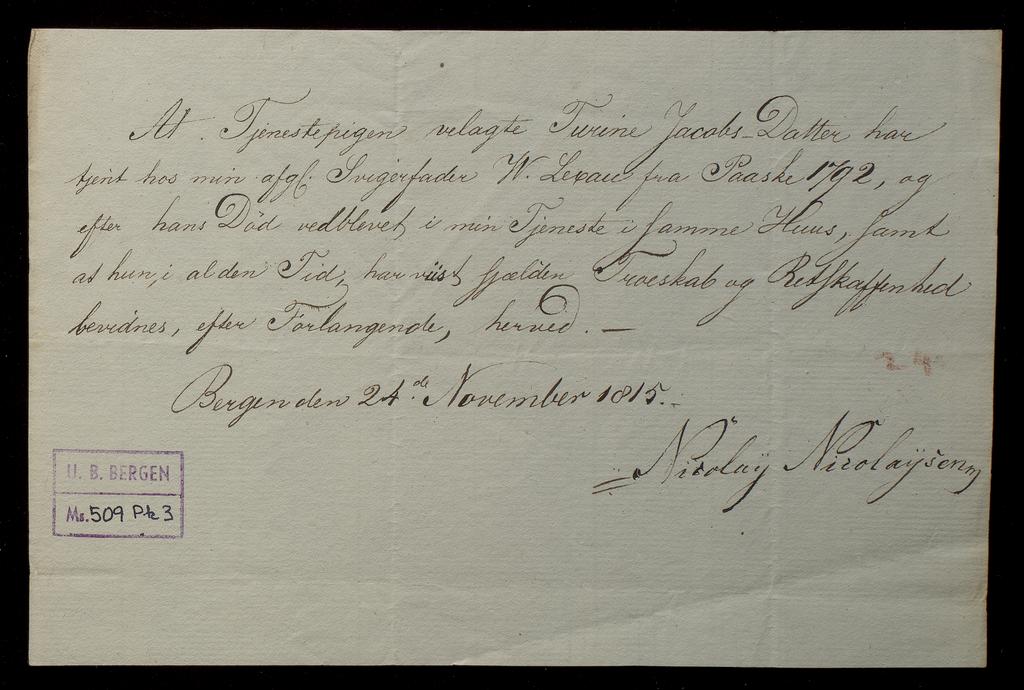 At Tjenestepigen velagte Turine Jacobs-Datter har
tjent hos min afgl: Svigerfader W. Lexau fra Paaske 1792, og
efter hans Död vedblevet i min Tjeneste i samme Huus, samt
at hun, i al den Tid, har viist sjælden Troeskab og Retskaffenhed
bevidnes, efter Forlangende, herved. —
Bergen den 24.de November 1815.
Nicolaÿ Nicolaÿsen
U. B. BERGEN
Ms. 509 Pk 3